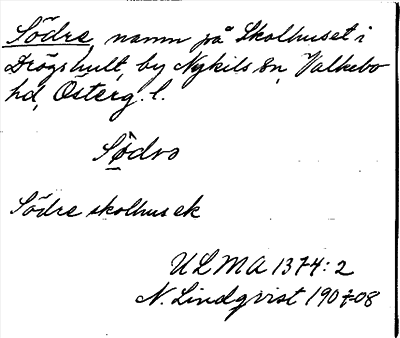 Södra, namn på Skolhuset i
Drögshult, by Nykils sn, Valkebo
hd, Österg. l.
Södro
Södra skolhusek
ULMA 1374:2
N. Lindqvist 1907-08